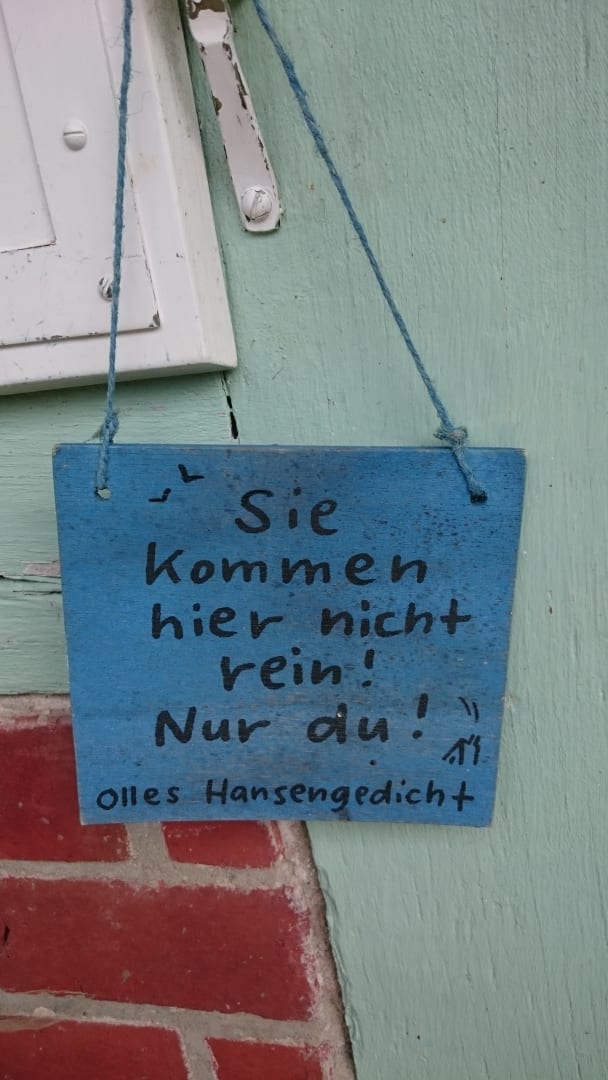 Sie
kommen
hier nicht
rein!
Nur du!
Olles Hansengedicht